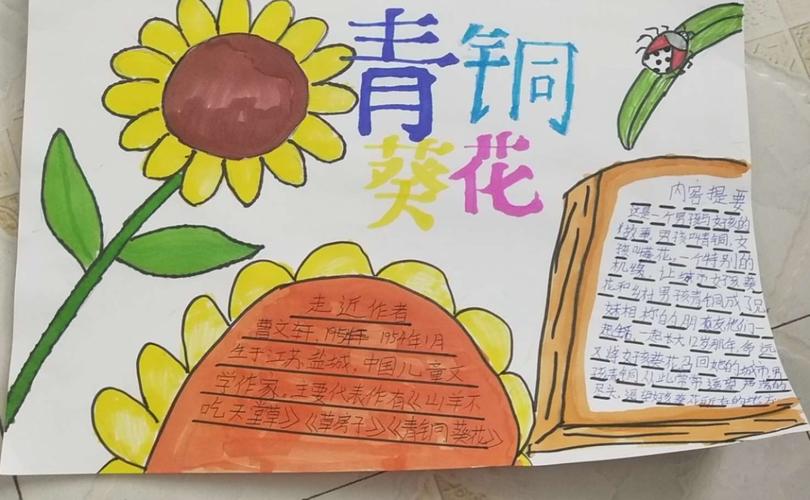 青铜
葵花
走近作者
曹文轩, 1954年1月
生于江苏盐城,中国儿童文
学作家,主要代表作有《山羊不
吃天堂草》《草房子》《青铜葵花》
内容提要
这是一个男孩与女孩的
故事男孩叫青铜,女
孩叫葵花,一个特别的
机缘,让城市女孩葵
花和乡村男孩青铜成了兄
妹相称的朋友他们一
起生活一起长大12岁那年命运
又将女孩葵花召回她的城市男
孩青铜